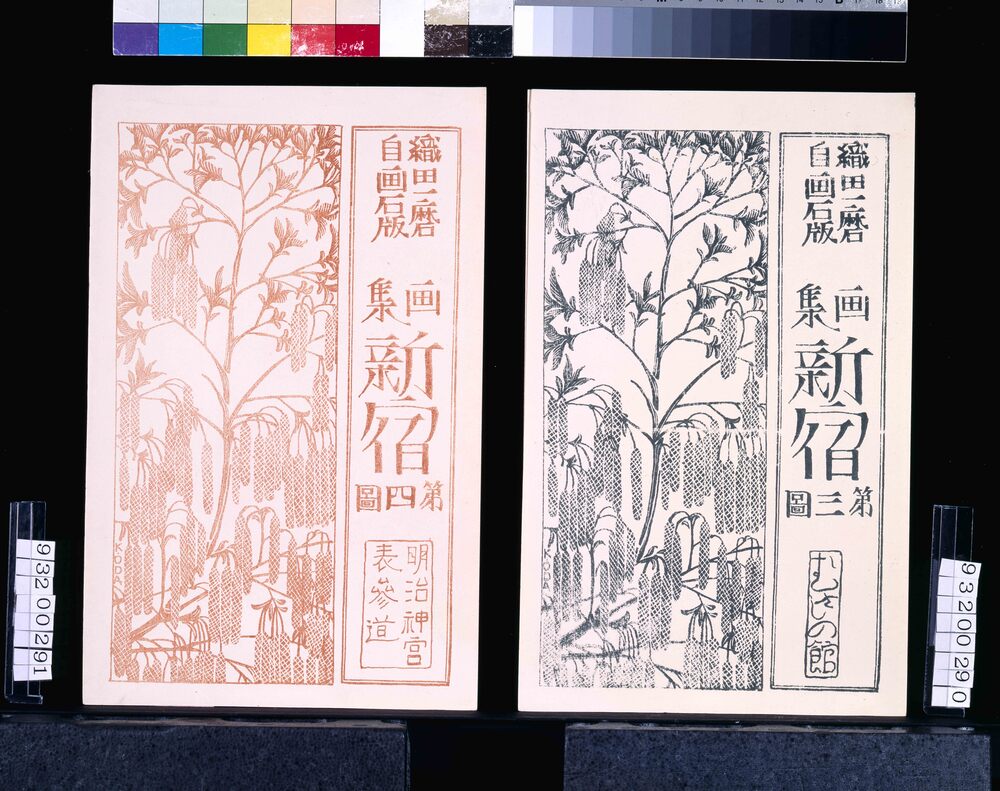 織田一磨
自画石版
画集
新宿
第四圖
明治神宮
表參道
KODA
93200291
織田一磨
自画石版
画集
新宿
第三圖
むさしの館
KODA
93200290